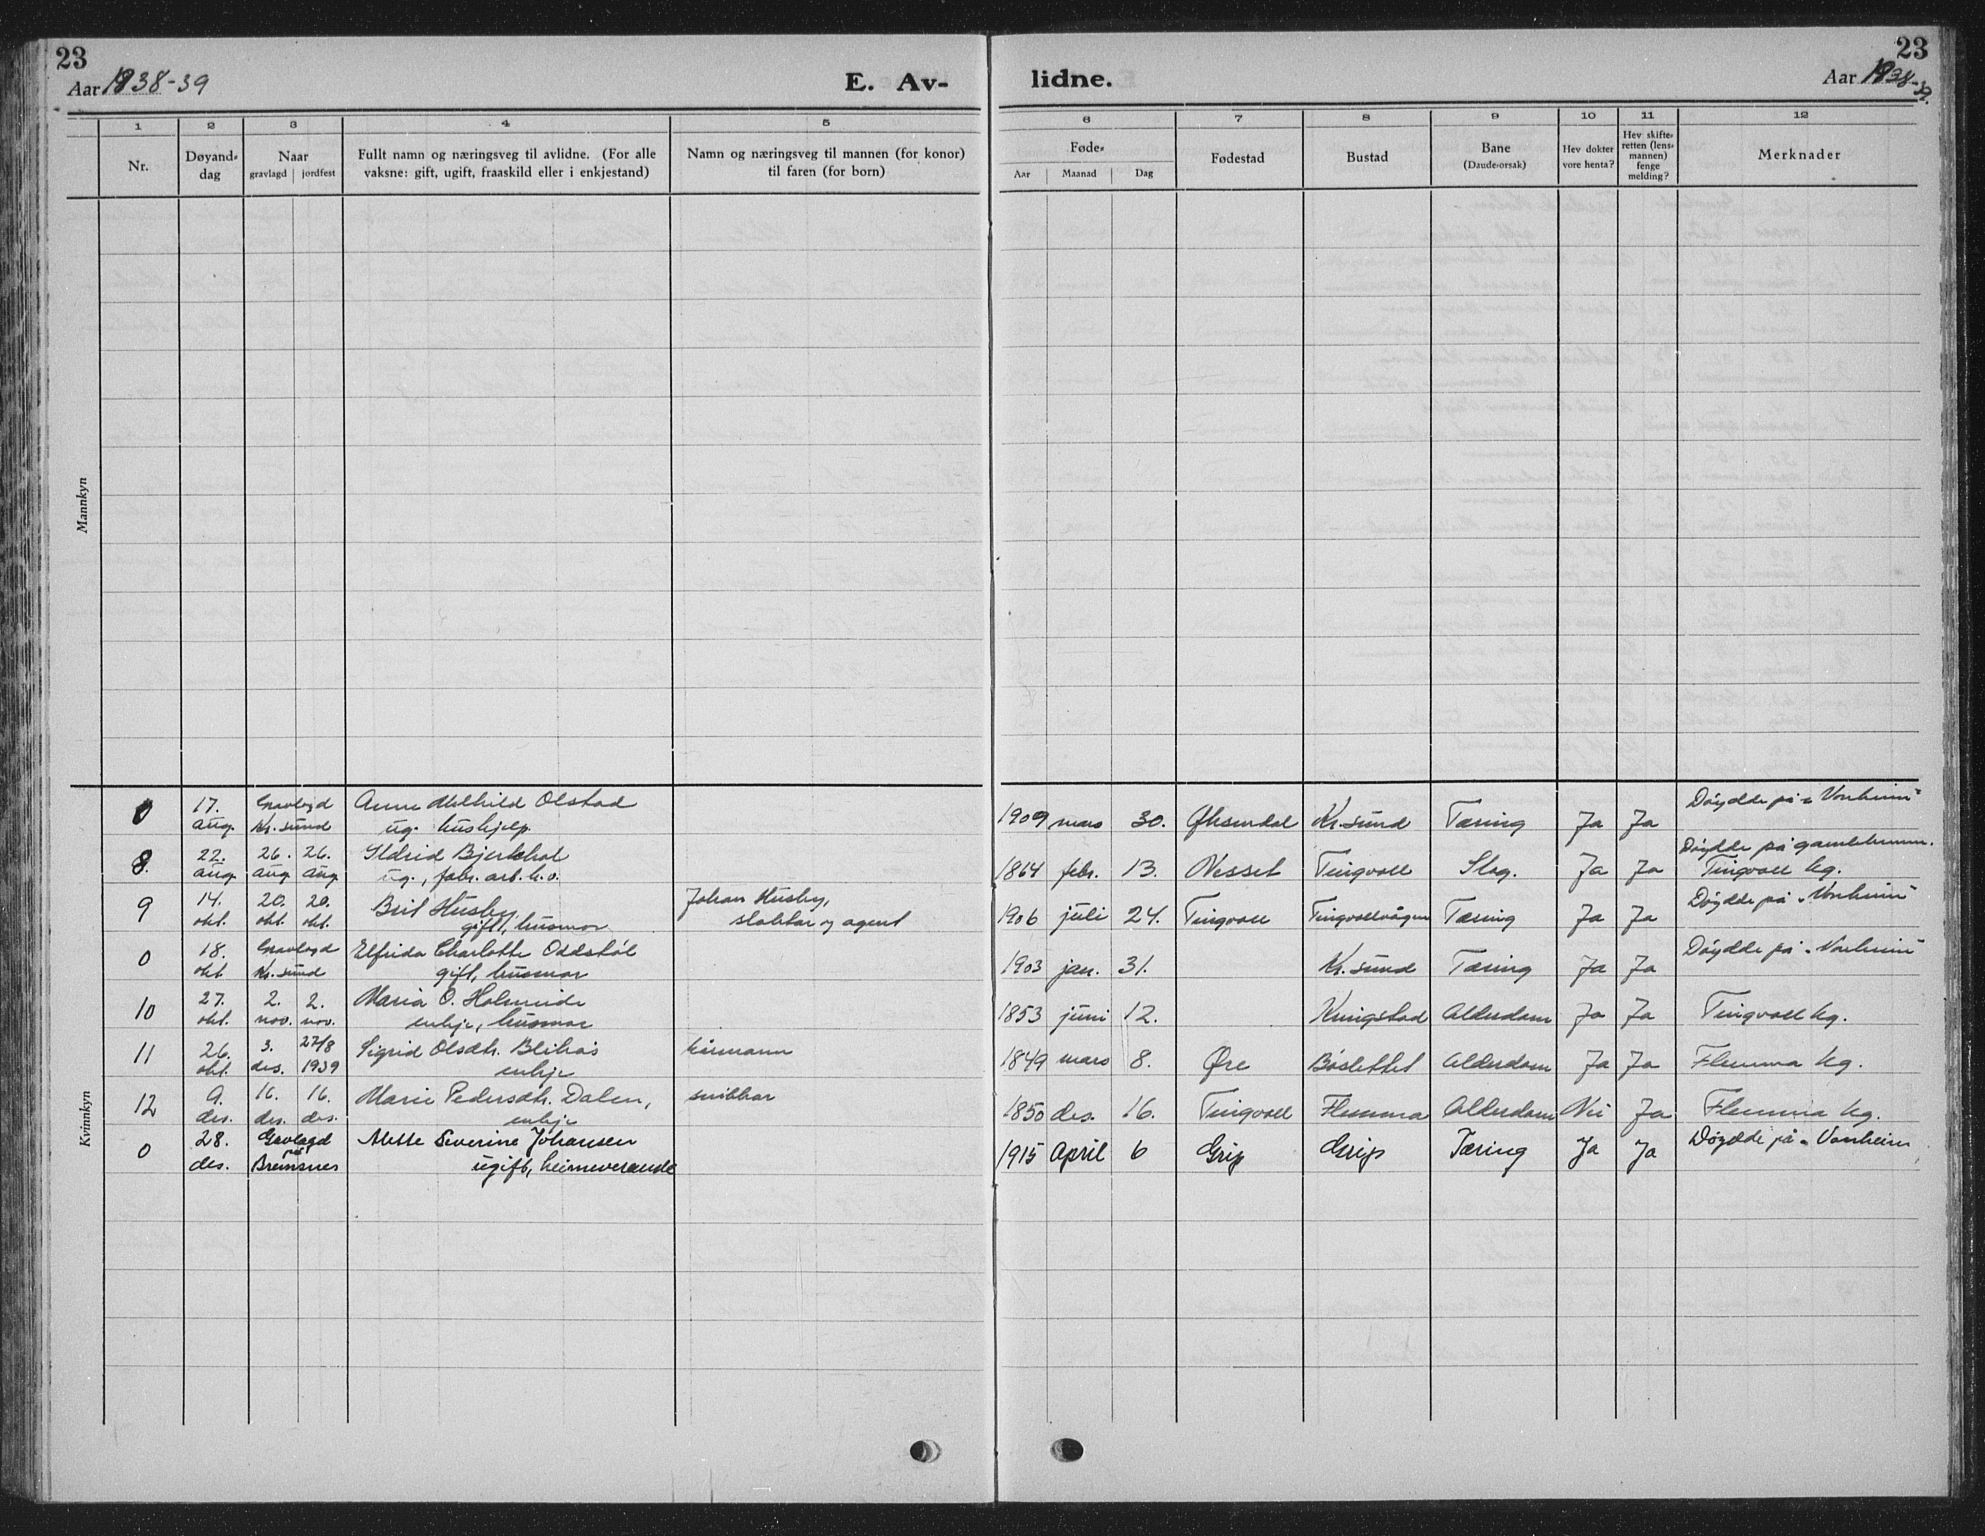 23
Aar 1938-39
E. Av-
lidne.
23
Aar 1938-39.
1 2 3 4 5 6 7 8 9 10 11 12
Nr.
Døyand-
dag
Naar
gravlagd | jordfest
Fullt namn og næringsveg til avlidne. (For alle
vaksne: gift, ugift, fraaskild eller i enkjestand)
Namn og næringsveg til mannen (for konor)
til faren (for born)
Føde-
Aar Maanad Dag
Fødestad
Bustad
Bane
(Daude-orsak)
Hev dokter
vore henta?
Hev skifte-
retten (lens-
mannen)
fenge
melding?
Merknader
Mannkyn
Kvinnkyn
0 17. Gravlagd Anne Olstad 1909 mars 30. Øksendal Kr.sund Tæring Ja Ja Døydde på "Vonheim"
aug. Kr. sund ug. hushjelp.
8. 22. 26. 26. Ildrid Bjerkhol 1864 febr. 13. Nesset Tingvoll Slag. Ja Ja Døydde på gamleheimen.
aug. aug. aug. ug., fabr. arb. h.v. Tingvoll kg.
9 14. 20. 20. Brit Husby, Johan Husby, 1906 juli 24. Tingvoll Tingvollvågen Tæring Ja Ja Døydde på "Vonheim"
okt. okt. okt. gift, husmor og agent
0 18. Gravlagd Elfrida Charlotte Oddstøl 1903 jan. 31. Kr. sund Tæring Ja Ja Døydde på "Vonheim"
okt. Kr. sund gift, husmor
10 27. 2. 2. Maria O. Holmeide 1853 juni 12. Kringstad Alderdom Ja Ja Tingvoll kg.
okt. nov. nov. enkje, husmor
11 26. 3. 27/8 Sigrid Olsdtr. Blikås kårmann 1849 mars 8. Øre Båslettet Alderdom Ja Ja Flemma kg.
okt. des. 1939 enkje
12 9. 16. 16. Marie Pedersdtr. Dalen, snikkar 1850 des. 16. Tingvoll Flemma Alderdom Nei Ja Flemma kg.
des. des. des. enkje
0 28. Gravlagd Mette Severine Johansen 1915 April 6 Grip Grip Tæring Ja Ja Døydde på "Vonheim
des. på Bremsnes ugift, heimeverande